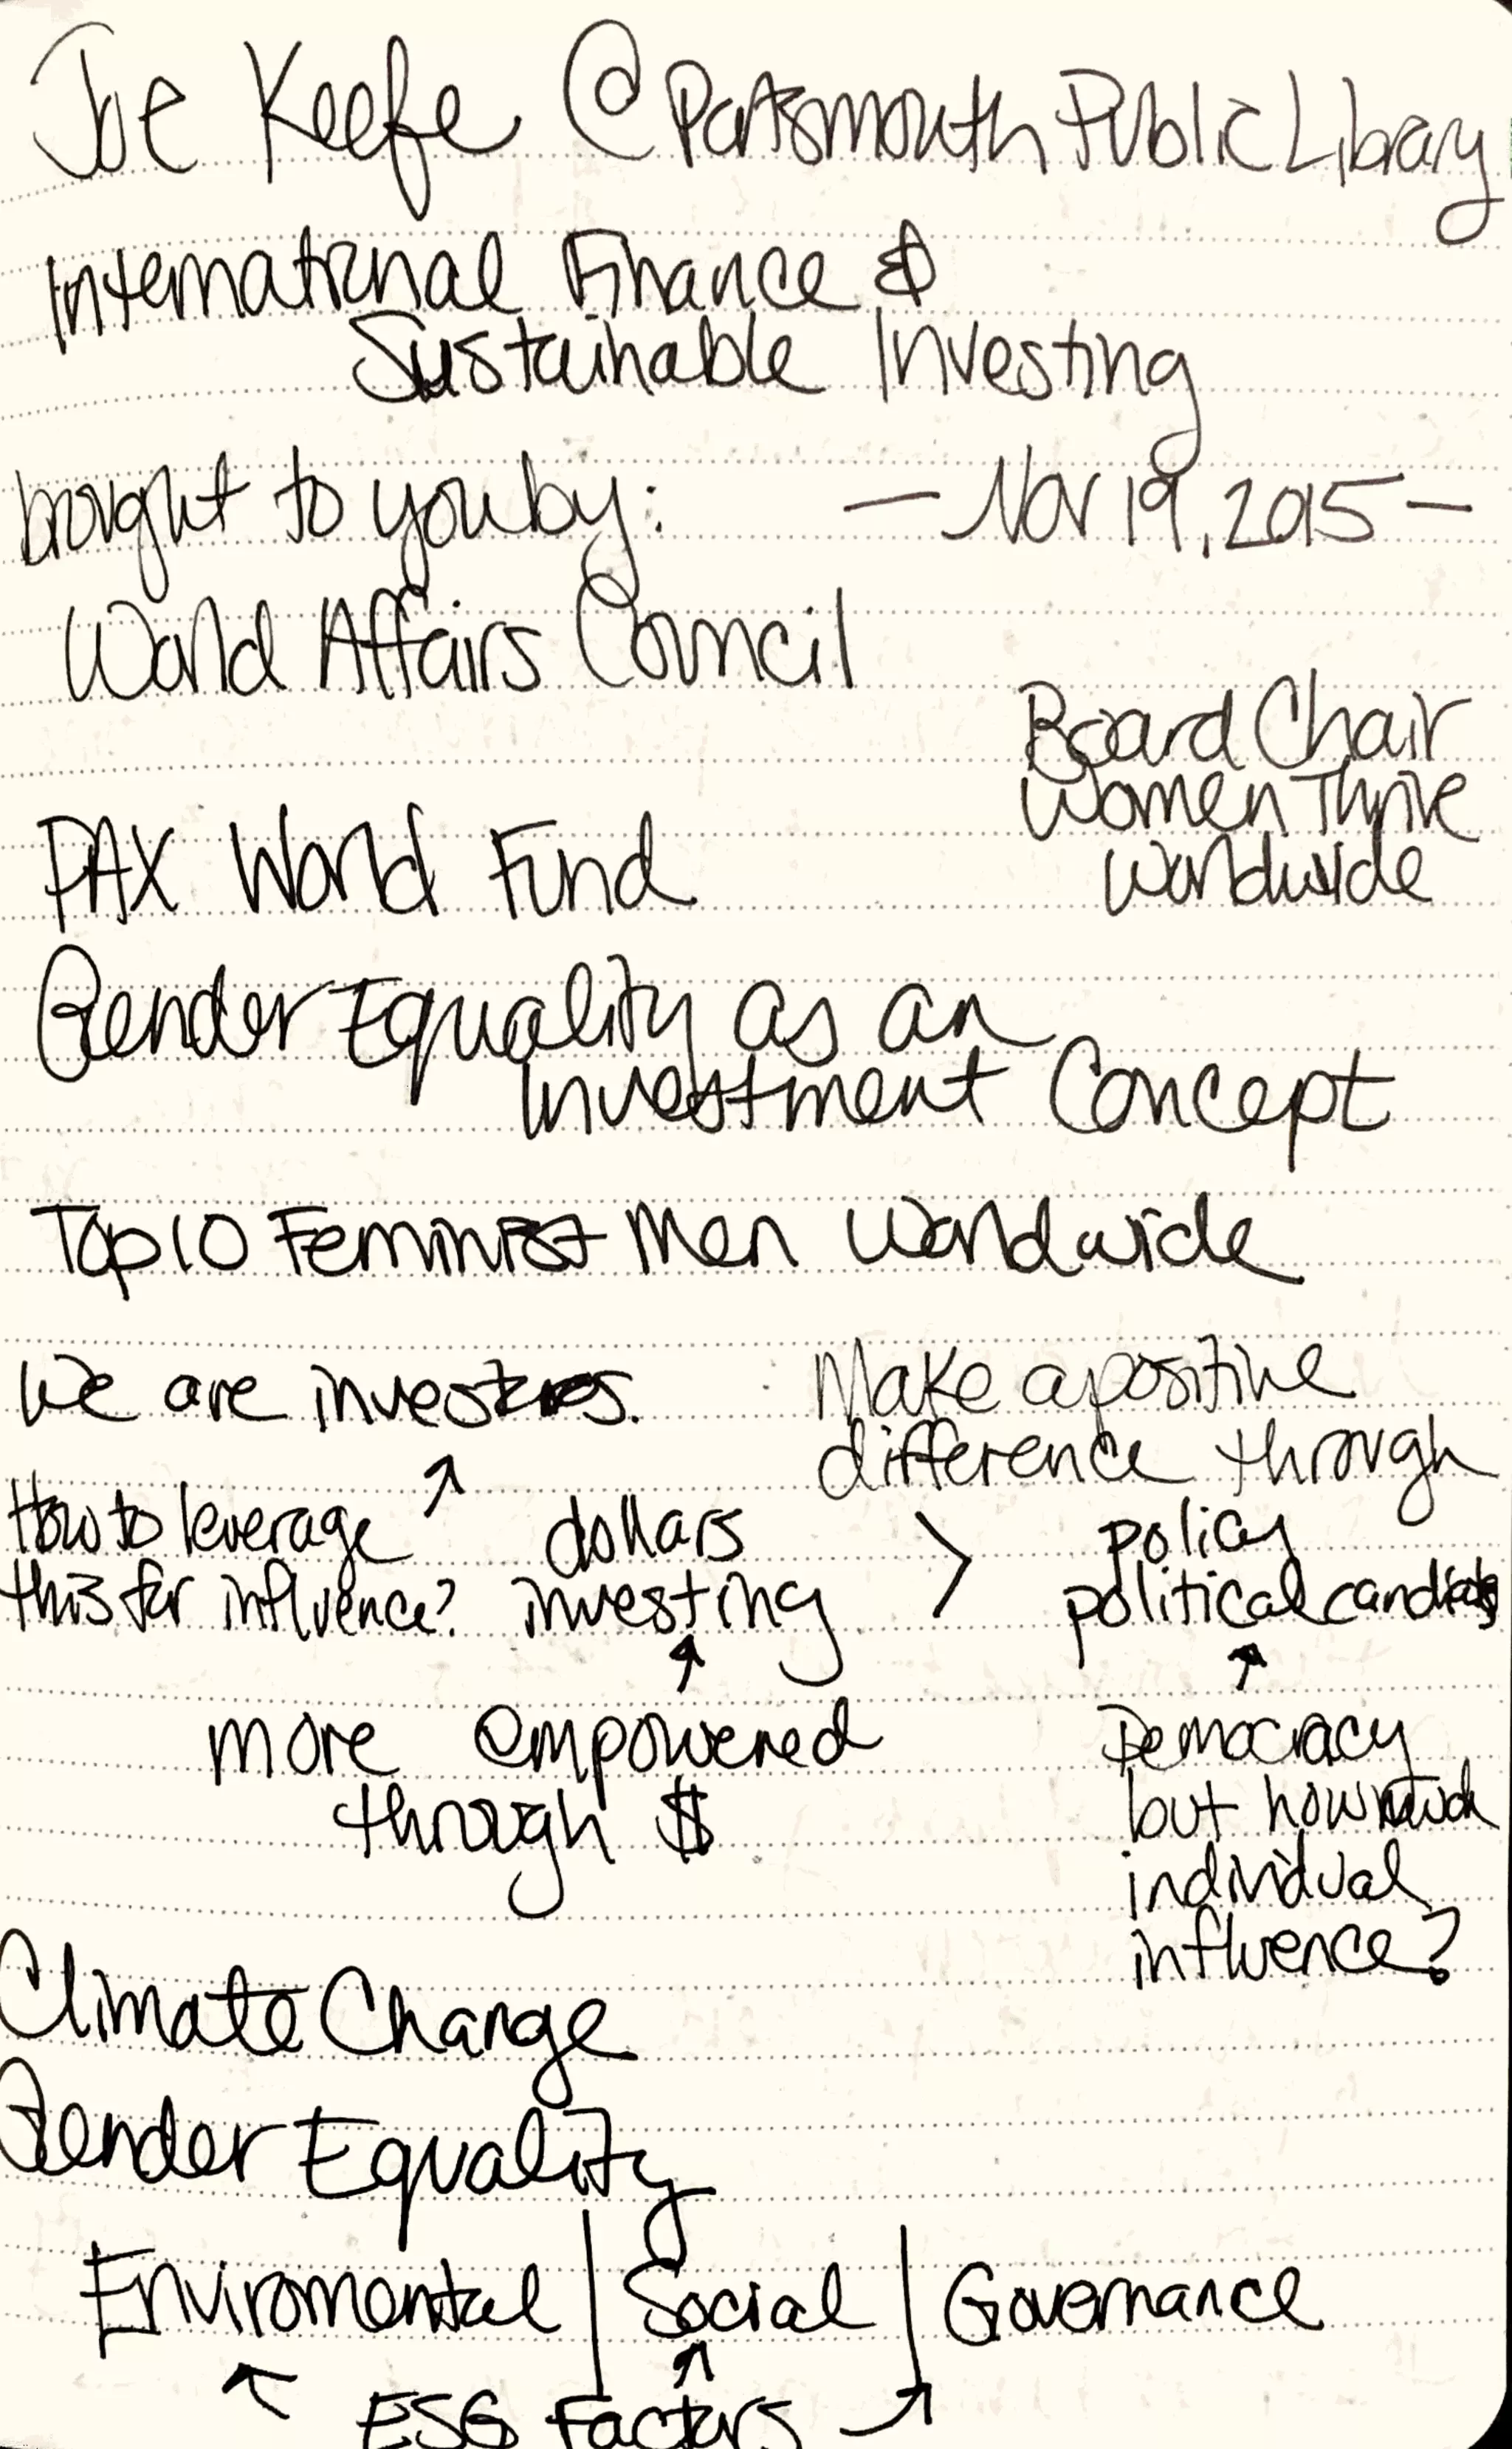 Joe Keefe @ Portsmouth Public Library
International Finance &
Sustainable Investing
brought to you by:
— Nov 19, 2015 —
World Affairs Council
Board Chair
Women Thrive
Worldwide
PAX World Fund
Gender Equality as an
Investment Concept
Top 10 Feminist Men Worldwide
We are investors.
Make a positive
difference through
How to leverage
this for influence?
dollars
investing
>
policy
political candidates
more empowered
through $
Democracy
but how much
individual
influence?
Climate Change
Gender Equality
Enviromental | Social | Governance
ESG Factors